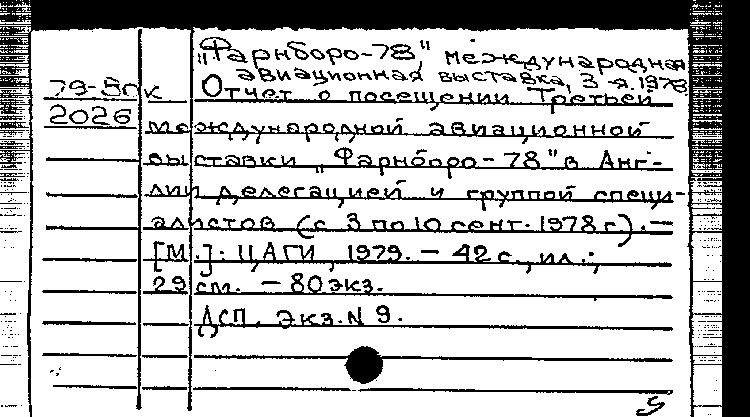 „Фарнборо-78", международная
авиационная выставка, 3-я. 1978
79-50к Отчет о посещении Третьей
2026 международной авиационной
выставки „Фарнборо-78" в Анг-
лии делегацией и группой специ-
алистов (с 3 по 10 сент. 1978 г). —
[М.]: ЦАГИ, 1979. — 42 с., ил.;
29 см. — 80 экз.
ДСП. Экз. N 9.